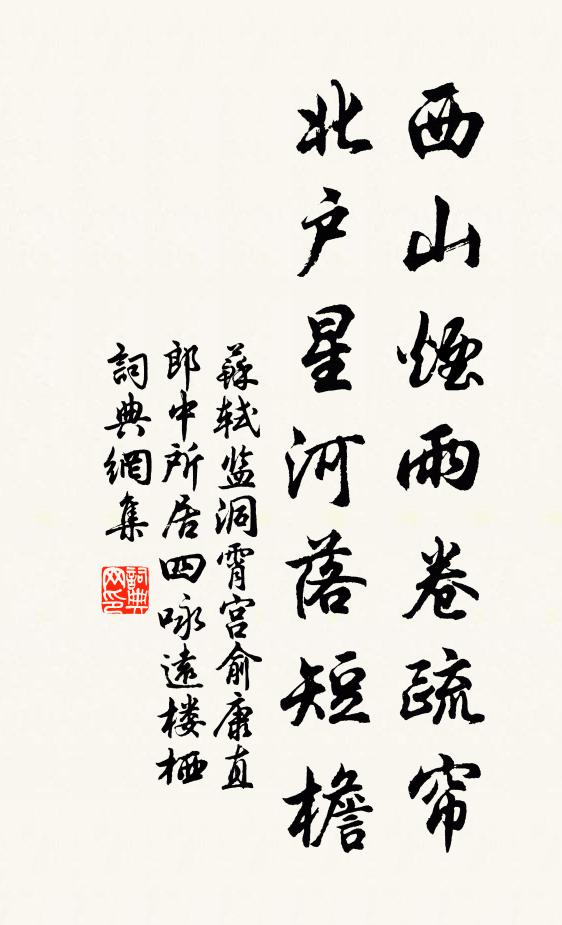 西山煙雨卷疏帘
北户星河落短檐
蘇軾监洞霄宫俞康直
郎中所居四咏遠楼栖
詞典網集
詞典
网印